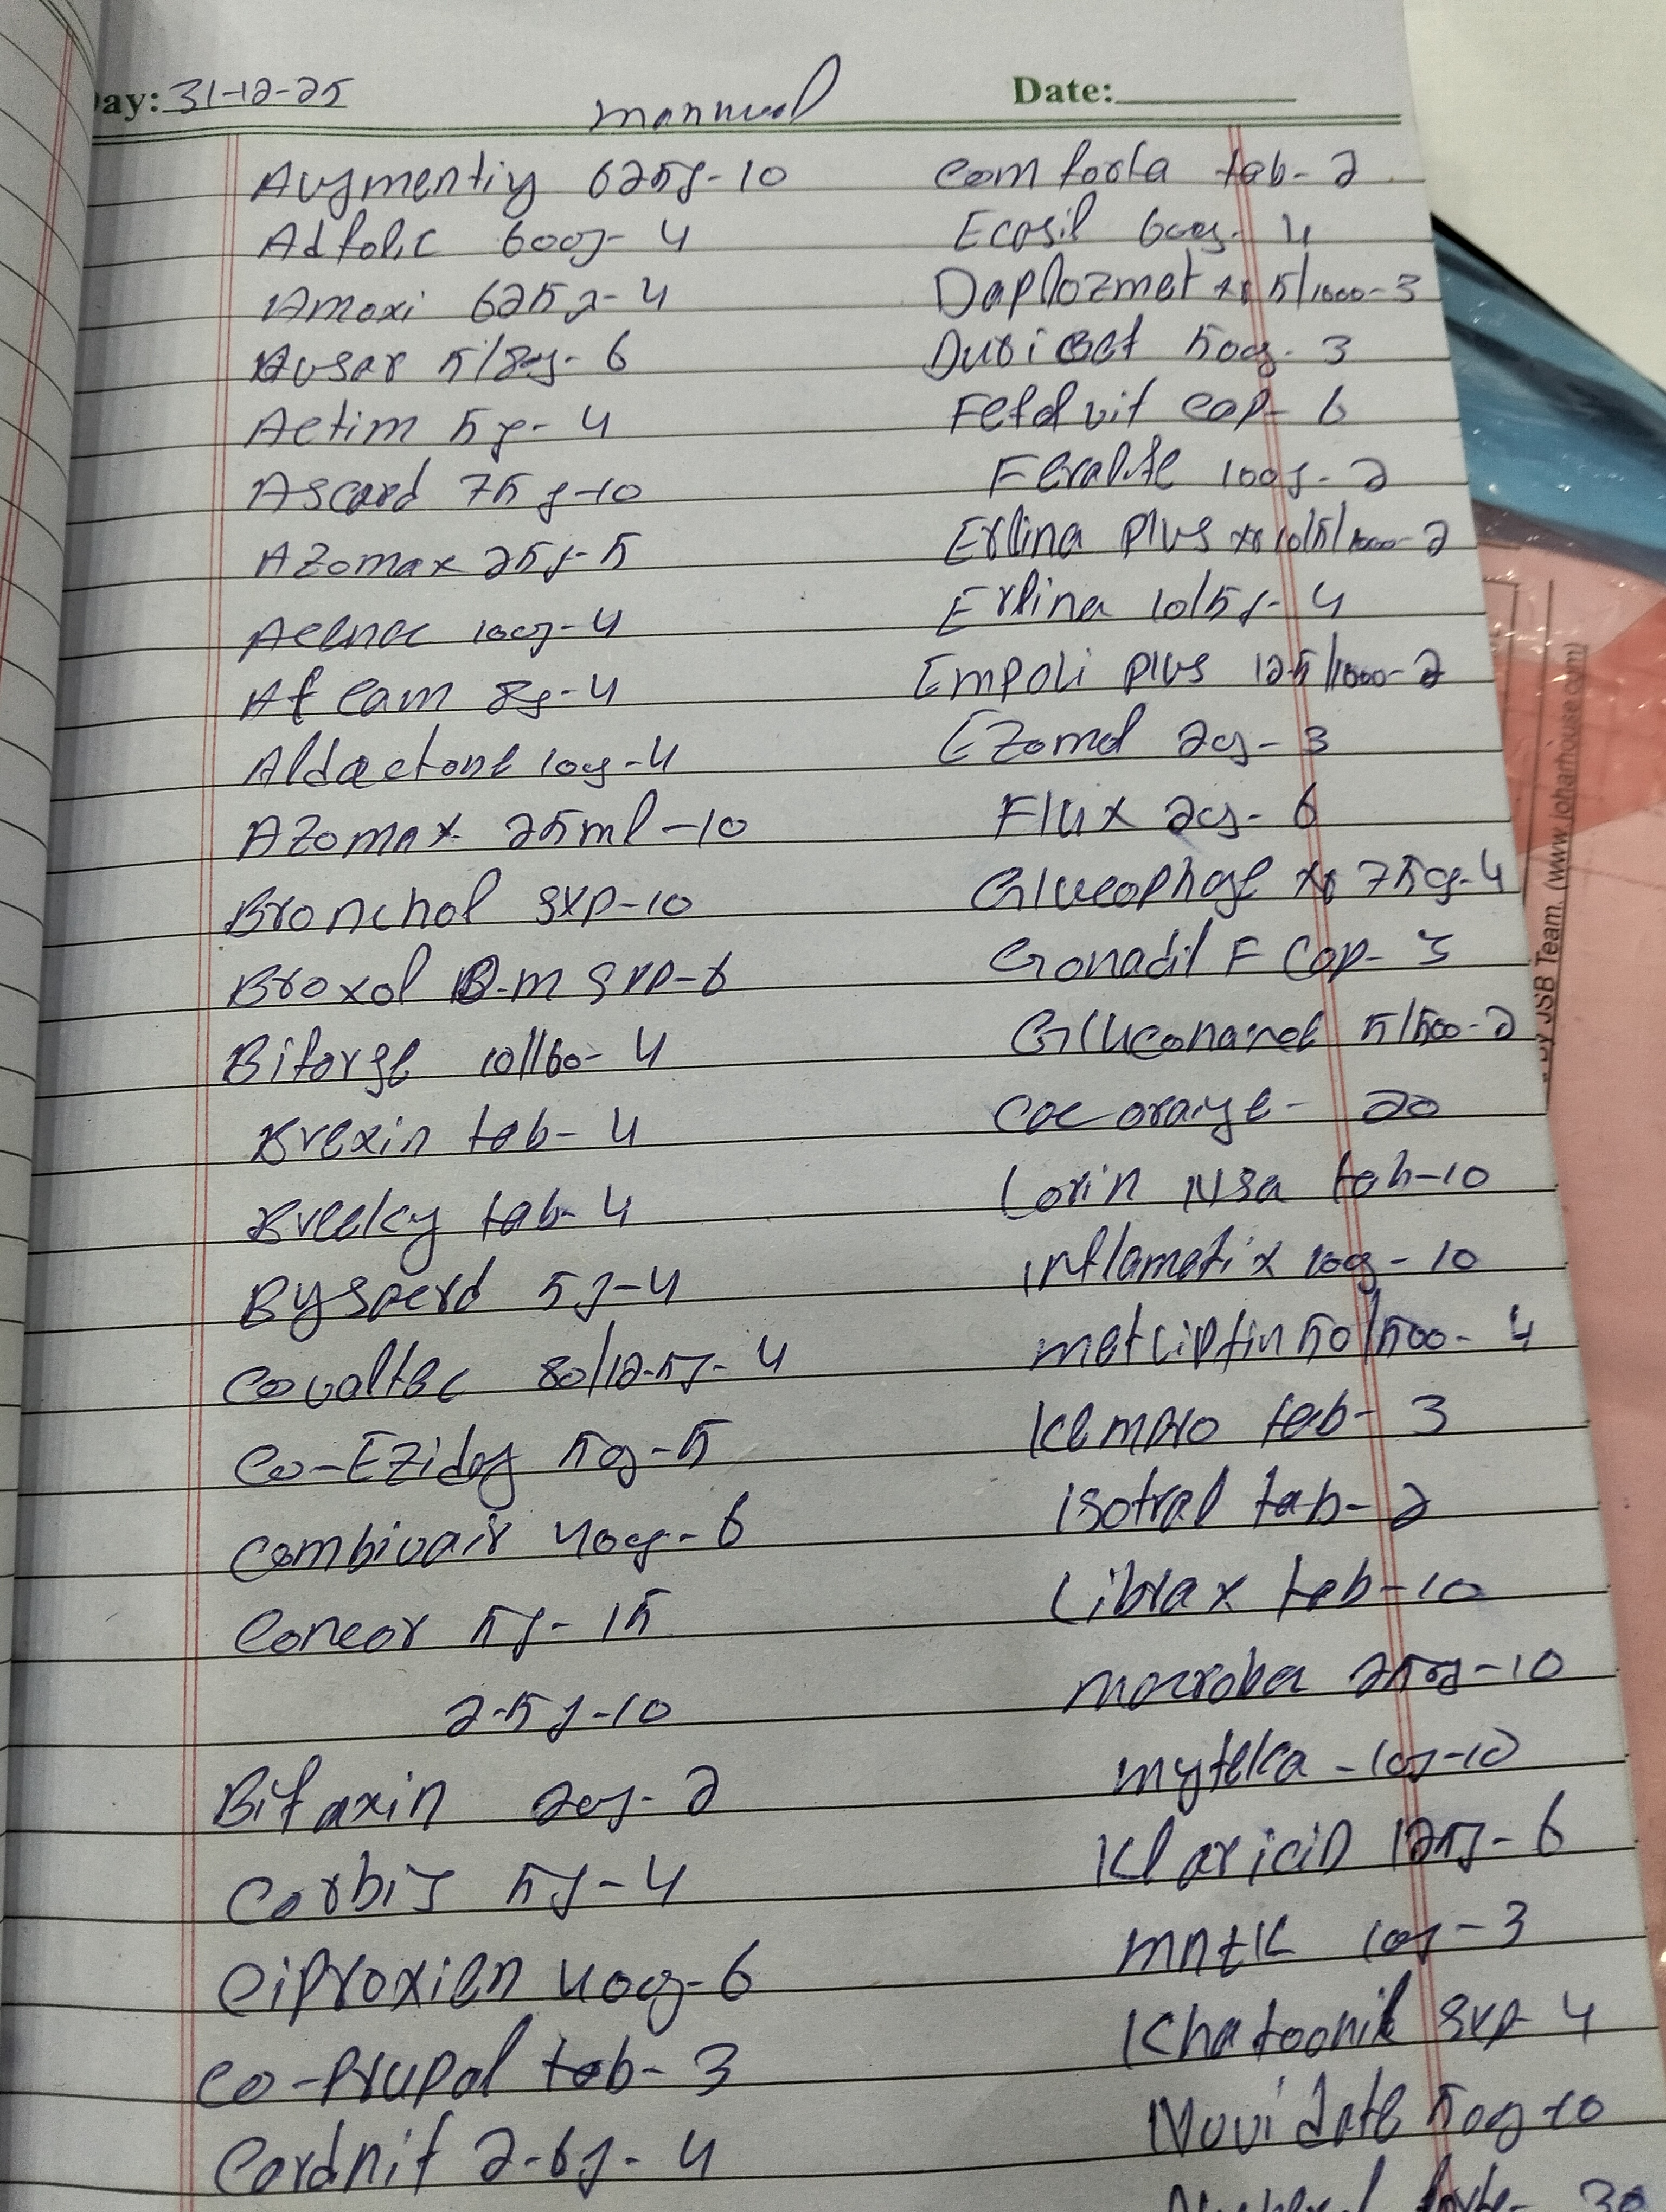 Day: 31-12-25
Date:
mannual
Augmentiy 625g-10
Adfolic 600g-4
Amoxi 625g-4
Avsar 5/80g-6
Actim 5g-4
Ascard 75g-10
Azomax 25g-5
Acenac 100g-4
Aflcam 8g-4
Aldactone 100g-4
Azomax 25ml-10
Bronchol syp-10
Broxol D-m syp-6
Biforge 10/160-4
Brexin tab-4
Breeky tab-4
Bysperd 5g-4
Covaltec 80/12.5g-4
Co-Eziday 50g-5
Combivair 400g-6
Concor 5g-15
2.5g-10
Bifaxin 200g-2
Corbis 5g-4
Ciproxien 400g-6
Co-Prupal tab-3
Cardnit 2.6g-4
Comforta tab-2
Ecosil 600g-4
Daplozmet xr 5/1000-3
Duricet 500g-3
Fefol vit cap-6
Feralite 100g-2
Erlina Plus xr 10/5/1000-2
Erlina 10/5g-4
Empoli Plus 12.5/1000-2
Ezomol 20g-3
Flux 20g-6
Glucophage xr 750g-4
Gonadil F Cap-3
Gluconamet 5/500-2
Cac orange-20
Lorin Nsa tab-10
inflamatix 100g-10
metliptin 50/500-4
Kempro tab-3
isotral tab-2
Librax tab-10
macrobac 250g-10
myteka-10g-10
Klaricid 125g-6
mntk 10g-3
Khatoonil syp-4
Novidate 500g-10
forte-30
By JSB Team. (www.joharhouse.com)